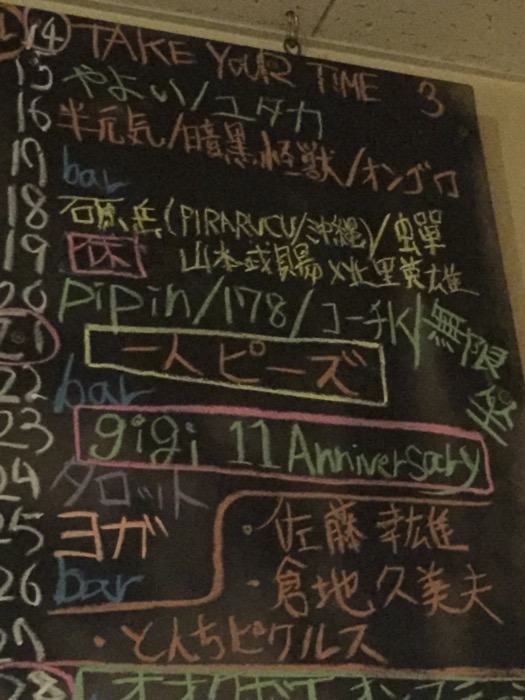 14 TAKE YOUR TIME 3
15 やよい/ユタカ
16 半元気/暗黒怪獣/オンゴロ
17 bar
18 石原岳(PIRARUCU/沖縄)/蛇蟬
19 山本武賜×北里英雄
20 pipin/178/コーチK/無限
21 一人ピーズ
22 bar
23 gigi 11 Anniversary
24 タロット
25 ヨガ ・佐藤幸雄
26 bar ・倉地久美夫
27 ・とんちピクルス
28